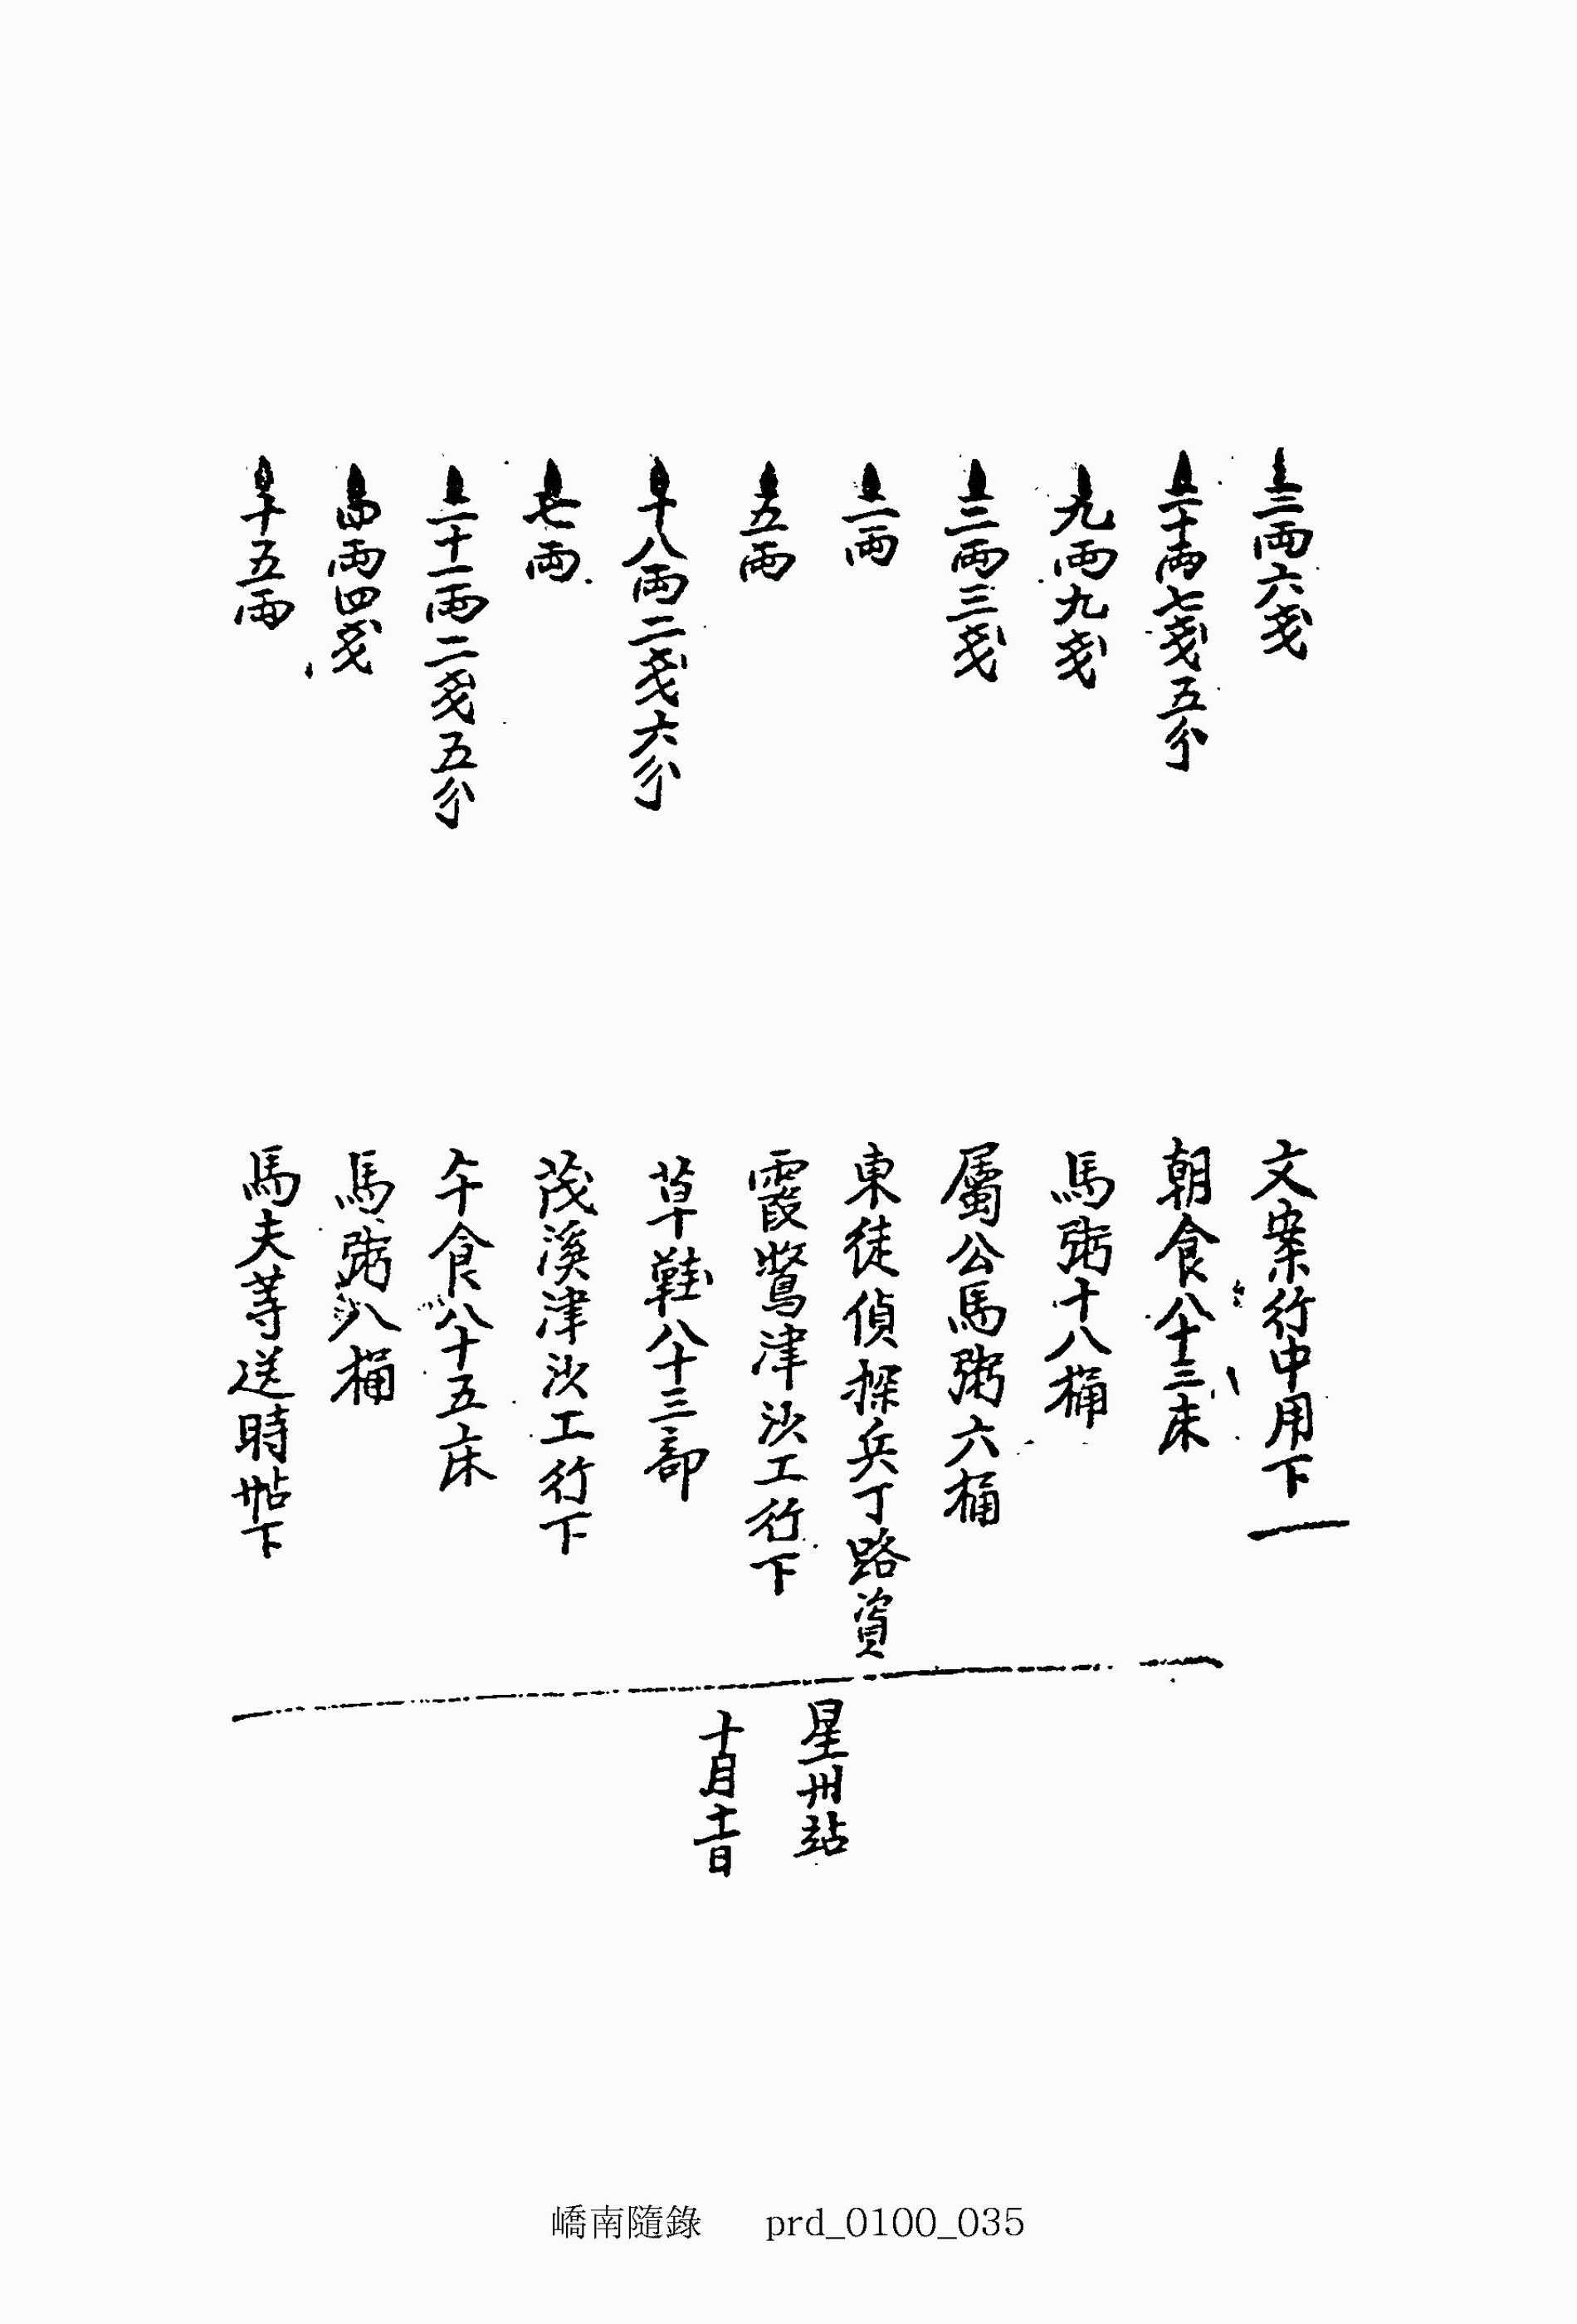 三兩六戔 文案行中用下
二十兩七戔五分 朝食八十三床
九兩九戔 馬粥十八桶
三兩三戔 屬公馬粥六桶
二兩 東徒偵探兵丁路資
五兩 霞鶩津沙工行下
十八兩二戔六分 草鞋八十三部
七兩 茂溪津沙工行下
二十一兩二戔五分 午食八十五床
四兩四戔 馬粥八桶
十五兩 馬夫等送時帖下
星州站
十月十二日
嶠南隨錄 prd_0100_035